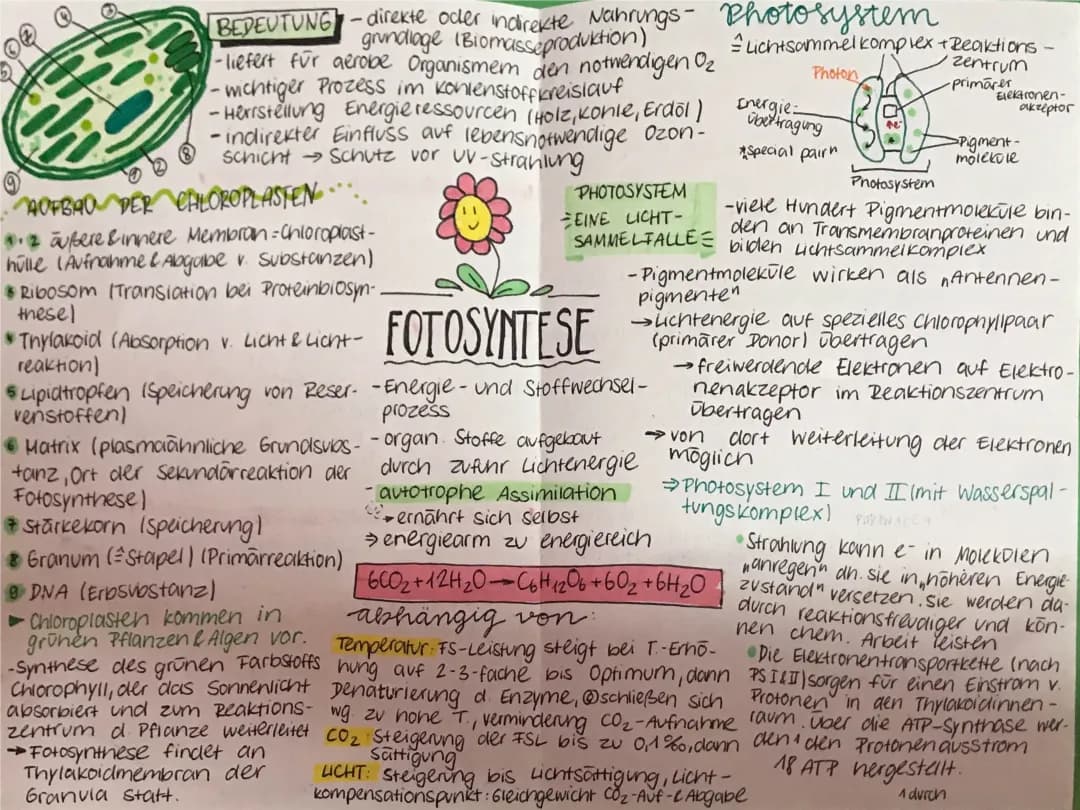 BEDEUTUNG
- direkte oder indirekte Nahrungs-
grundlage (Biomasseproduktion)
- liefert für aerobe Organismem den notwendigen O2
- wichtiger Prozess im Kohlenstoffkreislauf
- Herrstellung Energieressourcen (Holz, Kohle, Erdöl)
- indirekter Einfluss auf lebensnotwendige Ozon-
schicht → Schutz vor UV-Strahlung
Photosystem
≙ Lichtsammelkomplex + Reaktions-
zentrum
Photon
primärer
Elektronen-
akzeptor
Energie-
übertragung
"special pair"
Pigment-
moleküle
Photosystem
4
3
6
7
5
9
1
2
8
AUFBAU DER CHLOROPLASTEN
1+2 äußere & innere Membran = Chloroplast-
hülle (Aufnahme & Abgabe v. Substanzen)
3 Ribosom (Translation bei Proteinbiosyn-
these)
4 Thylakoid (Absorption v. Licht & Licht-
reaktion)
5 Lipidtropfen (Speicherung von Reser-
venstoffen)
6 Matrix (plasmaähnliche Grundsubs-
tanz, Ort der Sekundärreaktion der
Fotosynthese)
7 Stärkekorn (Speicherung)
8 Granum (≙ Stapel) (Primärreaktion)
9 DNA (Erbsubstanz)
► Chloroplasten kommen in
grünen Pflanzen & Algen vor.
- Synthese des grünen Farbstoffs
Chlorophyll, der das Sonnenlicht
absorbiert und zum Reaktions-
zentrum d. Pflanze weiterleitet
→ Fotosynthese findet an
Thylakoidmembran der
Granula statt.
FOTOSYNTESE
- Energie- und Stoffwechsel-
prozess
- organ. Stoffe aufgebaut
durch zufuhr Lichtenergie
- autotrophe Assimilation
→ ernährt sich selbst
⇒ energiearm zu energiereich
6CO2 + 12H2O → C6H12O6 + 6O2 + 6H2O
abhängig von:
Temperatur: FS-Leistung steigt bei T.-Erhö-
hung auf 2-3-fache bis Optimum, dann
Denaturierung d. Enzyme, schließen sich
wg. zu hohe T., verminderung CO2-Aufnahme
CO2: Steigerung der FSL bis zu 0,1‰, dann
Sättigung
LICHT: Steigerung bis Lichtsättigung, Licht-
kompensationspunkt: Gleichgewicht CO2-Auf- & Abgabe
PHOTOSYSTEM
= EINE LICHT-
SAMMELFALLE
- viele Hundert Pigmentmoleküle bin-
den an Transmembranproteinen und
bilden Lichtsammelkomplex
- Pigmentmoleküle wirken als "Antennen-
pigmente"
→ Lichtenergie auf spezielles Chlorophyllpaar
(primärer Donor) übertragen
→ freiwerdende Elektronen auf Elektro-
nenakzeptor im Reaktionszentrum
übertragen
→ von dort Weiterleitung der Elektronen
möglich
⇒ Photosystem I und II (mit Wasserspal-
tungskomplex)
• Strahlung kann e- in Molekülen
"anregen" dh. sie in "höheren Energie-
zustand" versetzen. Sie werden da-
durch reaktionsfreudiger und kön-
nen chem. Arbeit leisten
• Die Elektronentransportkette (nach
PS I & II) sorgen für einen Einstrom v.
Protonen in den Thylakoidinnen-
raum. Über die ATP-Synthase wer-
den 1 den Protonenausstrom
18 ATP hergestellt.
1 durch